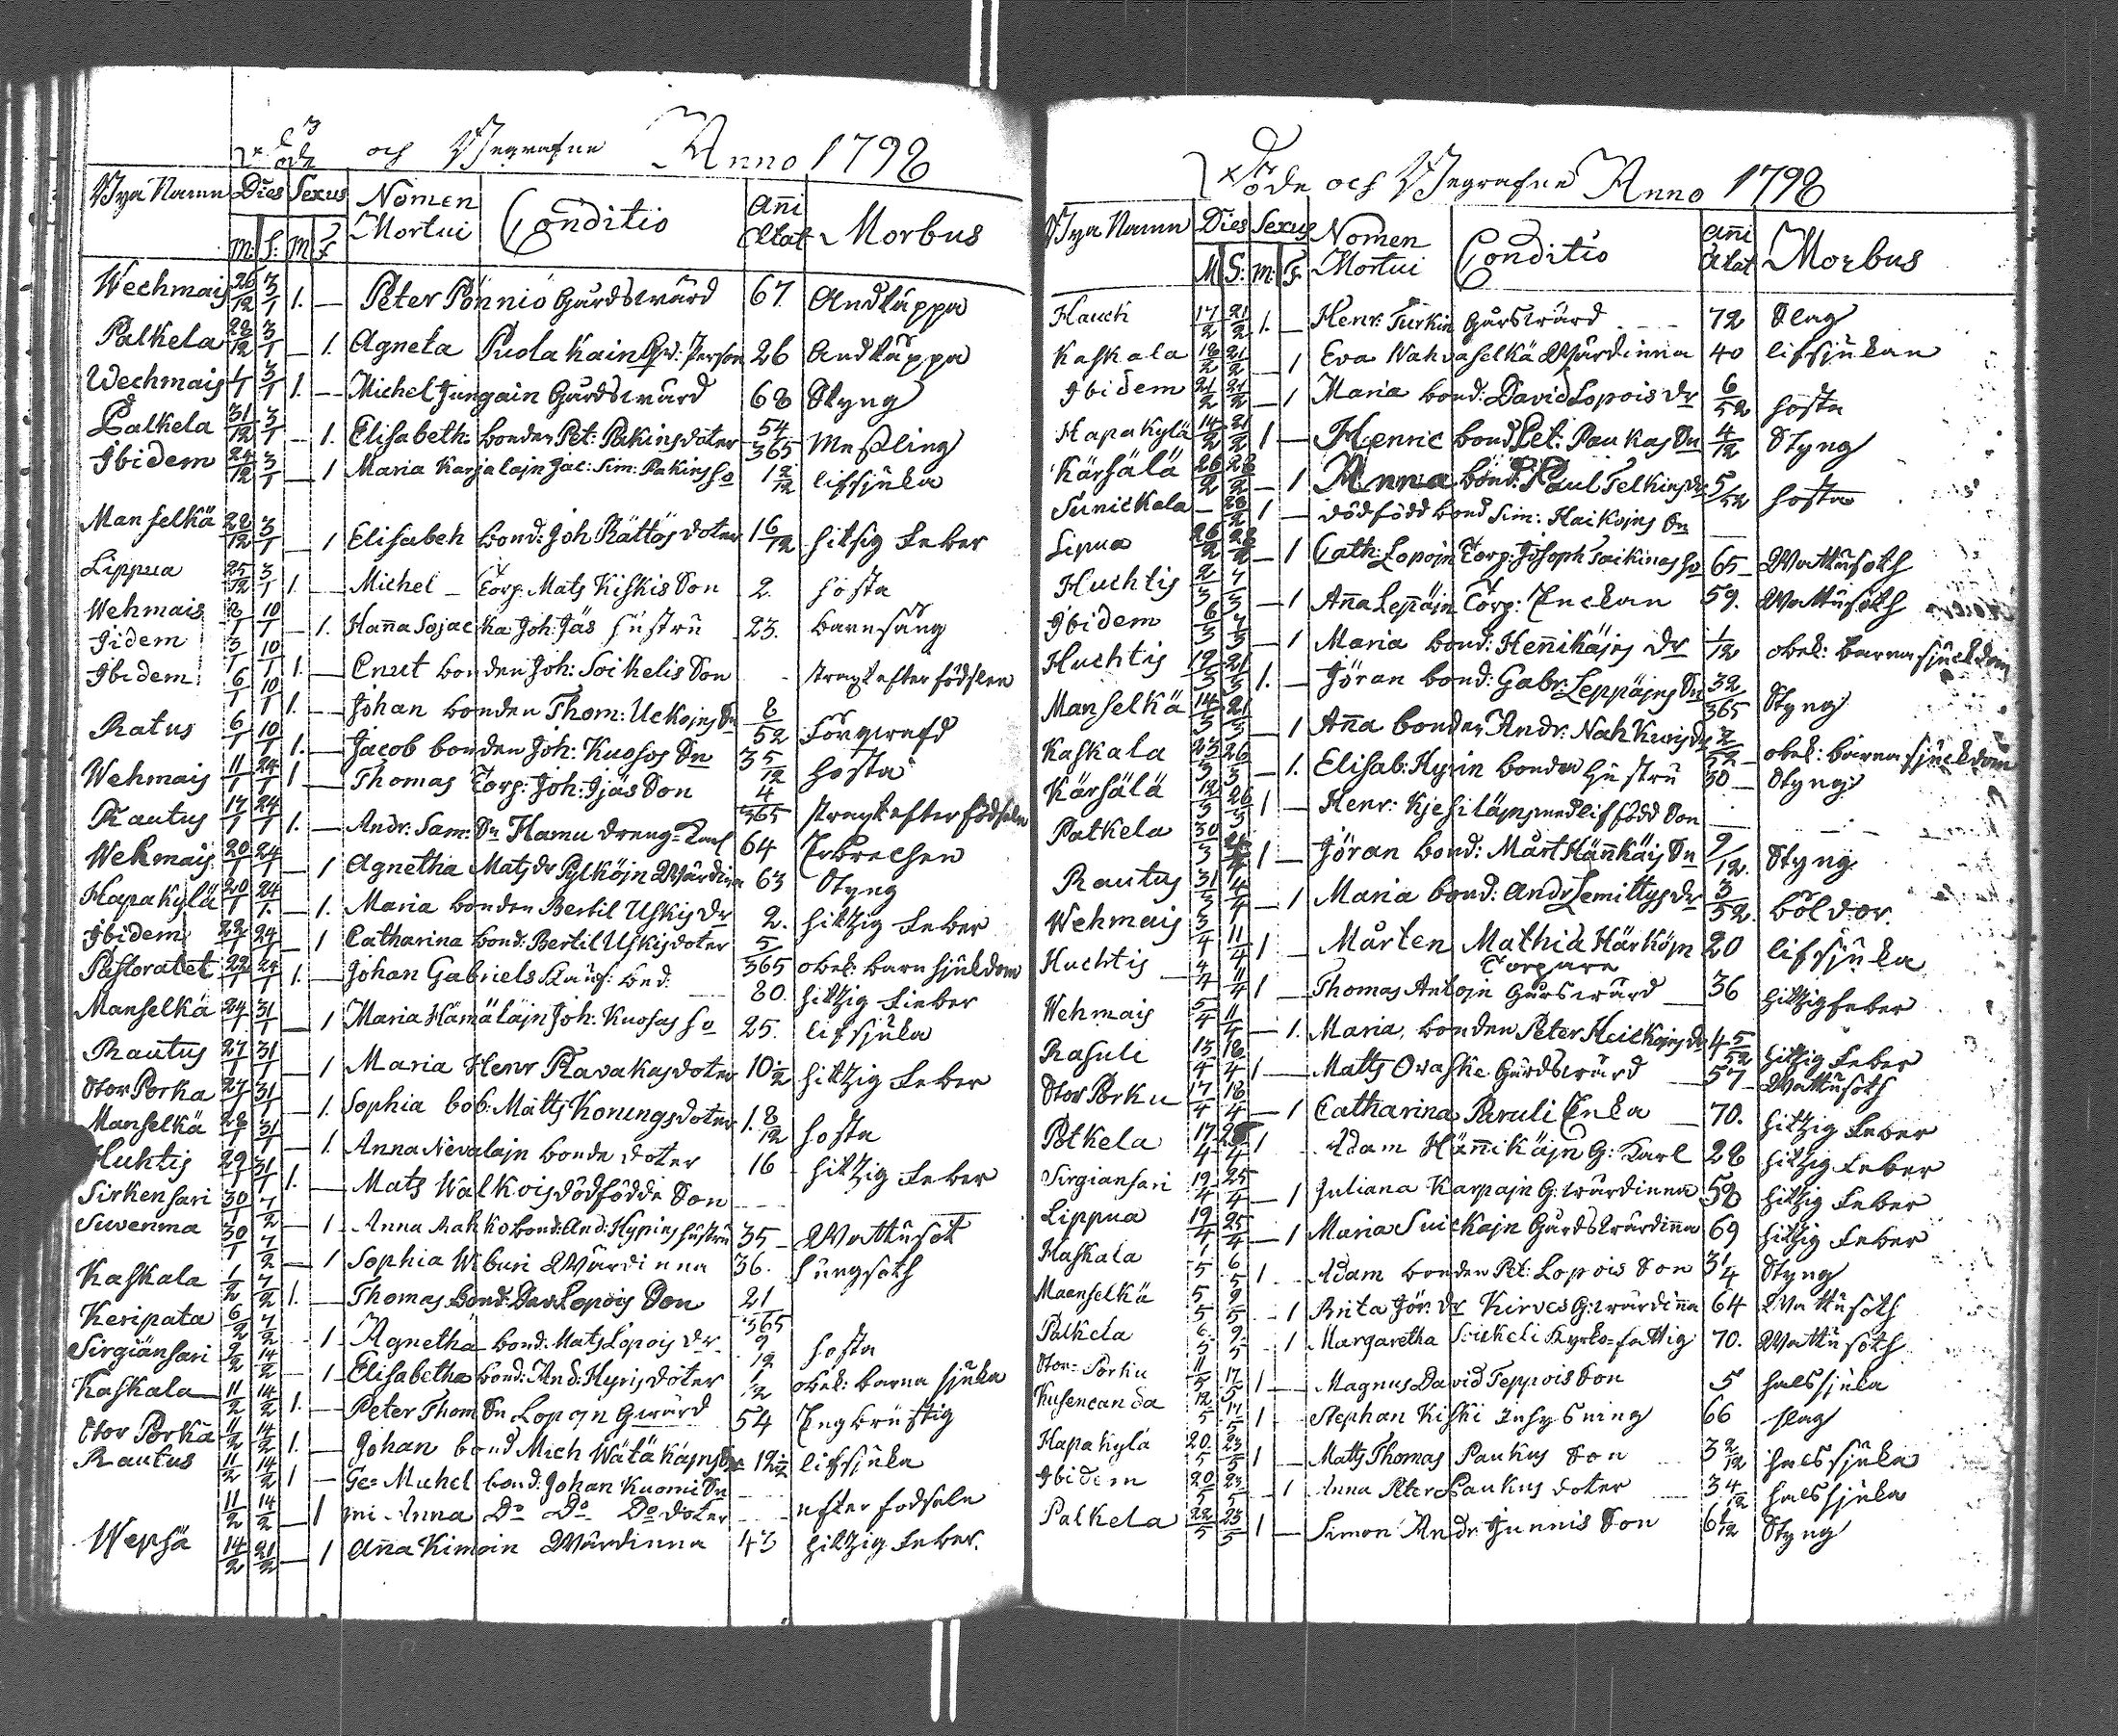 Döde och Begrafne Anno 1798
Bya Namn Dies Sexus Nomen Mortui Conditio Añi Ætat Morbus
M: S: M F
Wechmais 26/12 3/1 1. — Peter Pönniö Gårdswärd 67. Andtäppa
Palkela 28/12 3/1 — 1. Agneta Puolakain Gv: Person 26 Andtäppa
Wechmais 1/1 3/1 1. — Michel Jungain Gårdswärd 68 Styng
Palkela 31/12 3/1 — 1. Elisabeth bonden Pet: Pakins doter 54/365 Messling
Ibidem 24/12 3/1 — 1 Maria Karjalajn Jac: Sim: Pakins ho 1 2/12 lifsjuka
Manselkä 28/12 3/1 — 1 Elisabeh bond: Joh Rättös doter 1 6/12 hitsig Feber
Lippua 25/12 3/1 1. — Michel — Torp: Mats Kiskis Son 2. hosta
Wehmais 2/1 10/1 — 1. Hana Sojacka Joh: Jäs hustru 23. barnsäng
Jidem 3/1 10/1 1. — Cnut bonden Joh: Soikelis Son - strax efter födslen
Ibidem 6/1 10/1 1. — Johan bonden Thom: Uckojns Sn 8/52 Förqwafd
Ratus 6/1 10/1 1. — Jacob bonden Joh: Kuosos Sn 3 5/12 hosta
Wehmais 11/1 24/1 1 — Thomas Torp: Joh: Ijäs Son 4/365 strax efter födseln
Rautus 17/1 24/1 1. — Andr: Sam: Sn Hamu dreng=Karl 64 Torbrechen
Wehmais 20/1 24/1 — 1 Agnetha Mats dr Pylköjn Wärdina 63 Styng
Hapakylä 20/1 24/1. — 1. Maria bonden Bertil Uskis dr 2. hitzig Feber
Ibidem 22/1 24/1 — 1 Catharina bond: Bertil Uskis doter 5/365 obek: barnsjukdom
Pastoratet 22/1 24/1 1. — Johan Gabriels 80. hitzig Fieber
Manselkä 24/1 31/1 — 1 Maria Hämäläjn Joh: Kuosas ho 25. lifsjuka
Rautus 27/1 31/1 — 1 Maria Henr Ravakas doter 10 1/2 hitzig Feber
Stor Porka 27/1 31/1 — 1. Sophia bob: Matts Konungs doter 1. 8/12 hosta
Manselkä 28/1 31/1 — 1. Anna Nevalajn bonde doter 16 hitzig Feber
Huhtis 29/1 31/1 1. — Mats Walkois dödfödde Son - - -
Sirkensari 30/1 7/2 — 1 Anna Rahko bond: And: Hypins hustru 35 — Wattusot
Suvenma 30/1 7/2 — 1 Sophia Wiburi Wärdinna 36. Lungsoth
Kaskala 1/2 7/2 1. — Thomas bond: Dav Lopois Son 21/365
Keripata 6/2 7/2 - 1 Agnetha bond: Mats Lopois dr 9/12 hosta
Sirgiänsari 9/2 14/2 — 1 Elisabetha bond: And: Hyris doter 1/12 obek: barna sjuka
Kaskala 11/2 14/2 1. — Peter Thom Sn Lopojn Gwärd 54 Engbrüstig
Stor Porka 11/2 14/2 1. — Johan bond Mich Wätäkäjns Sn 12 1/2 lifsjuka
Rautus 11/2 14/2 1 — Ge= Muhel bond: Johan Kuomi Sn - - -
11/2 14/2 — 1 mi Anna Do Do Do doter - - - efter fodseln
Wepsä 14/2 21/2 — 1 Aña Kimoin Wärdinna 43 hitzig Feber.
Döde och Begrafne Anno 1798
Bya Namn Dies Sexus Nomen Mortui Conditio Añi Ætat Morbus
M S: M: F:
Hauch 17/2 21/2 1. — Henr: Turkin Gårswärd 72 Slag
Kaskala 18/2 21/2 — 1 Eva Nahvaselkä Wärdinna 40 lifsjukan
Ibidem 21/2 21/2 — 1 Maria bond: David Lopois dr 6/52 hosta
Hapakylä 14/2 21/2 1 — Henric bond Pet: Paukas Sn 4/12 Styng
Kärsälä 26/2 28/2 — 1 Anna bond: Paul Telkins dr 5/52 hosta
Sunickala — 28/2 1 — dödfödd bond Sim: Haikojns Sn —
Lipua 26/2 28/2 — 1 Cath: Lopojn Torp: Joseph Taikinas ho 65 — Wattusoth
Huchtis 2/3 7/3 — 1 Aña Leppäjn Torp: Enckan 59. Wattusoth
Ibidem 6/3 7/3 — 1 Maria bond: Heñikäjns dr 1/12 obek: barna sjuckdom
Huchtis 19/3 21/3 1. — Jöran bond: Gabr: Leppäjns Sn 32/365 Styng
Manselkä 14/3 21/3 — 1 Aña bonden Andr: Nahkuis dr 2/52 — obek: barna sjuckdom
Kaskala 23/3 26/3 — 1. Elisab: Hyrin bonden hustru 30 — Styng
Kärsälä 12/3 26/3 1 — Henr: Kjesiläjns med lif född Son —
Patkela 30/3 1 — Jöran bond: Mårt Hänkäjs Sn 9/12. Styng
Rautus 31/3 14/4 — 1 Maria bond: Andr Lemittys dr 3/52. böldor.
Wehmais 5/4 11/4 1 — Mårten Mathia Härköjn Torpare 20 lifsjuka
Huchtis 4/4 11/4 1 — Thomas Antojn Gårswärd 36 hitzig feber
Wehmais 5/4 11/4 — 1. Maria bonden Peter Heickojns dr 4 5/52 hitzig Feber
Rasuli 15/4 18/4 1 — Matts Ovaska Gårdswärd 57 — Wattusoth
Stor Porku 17/4 18/4 — 1 Catharina Paruli Enka 70. hitzig Feber
Potkela 17/4 25/4 1 Adam Häñikäjn G: Karl 28 hitzig Feber
Sirgiansari 19/4 25/4 — 1 Juliana Karpajn G: wärdinna 58 hitzig Feber
Lippua 19/4 25/4 — 1 Maria Suickajn Gårdswärdiña 69 hitzig Feber
Haskala 1/5 6/5 1 - Adam bonden Pet: Lopois Son 3/4 Styng
Maanselkä 5/5 9/5 - 1 Brita Jör: dr Kirves G: wärdiña 64 Wattusoth
Palkela 6/5 9/5 - 1 Margaretha Soickeli Kyrko=fattig 70. Wattusoth
Stor=Porku 11/5 17/5 1 — Magnus David Teppois Son 5 halssjuka
Kusencanda 12/5 17/5 1 - Stephan Kiski Inhysning 66 slag
Hapakylä 20/5 23/5 1 — Matts Thomas Paukus Son 3 2/12 halssjuka
Ibidem 20/5 23/5 - 1 Anna Peter Paukus doter 3 4/12 halssjuka
Palkela 22/5 23/5 1 — Simon Andr Junnis Son 6/12 Styng